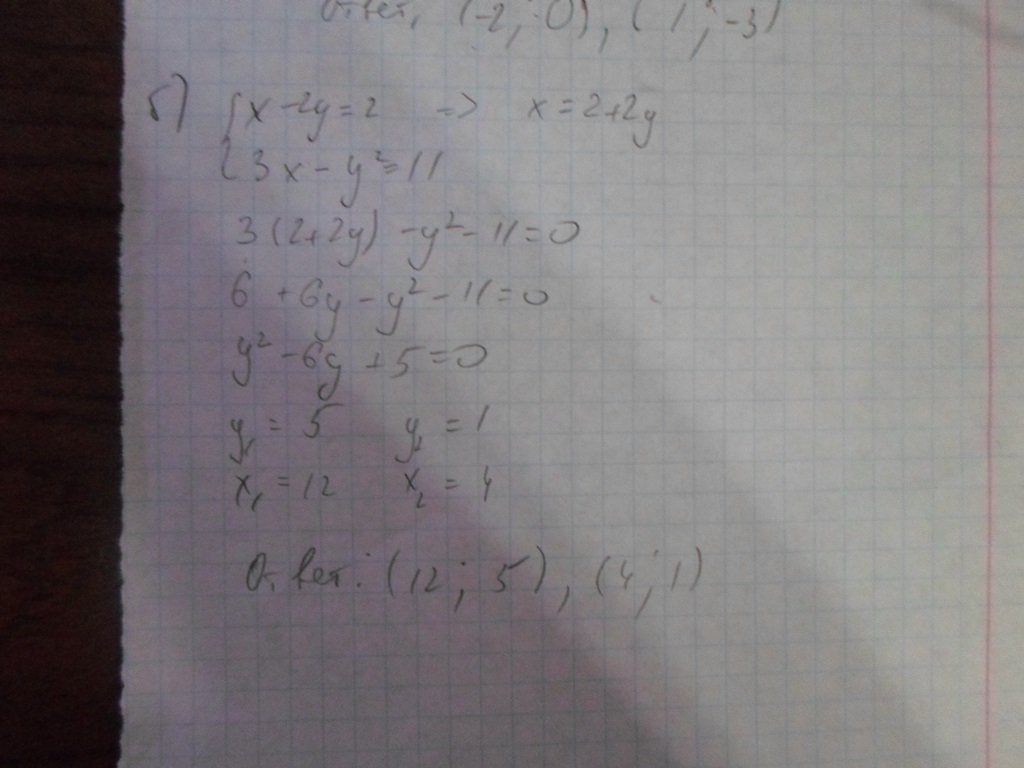 Ответ, (-2; 0), (1; -3)
б) { x - 2y = 2 => x = 2+2y
{ 3x - y² = 11
3(2+2y) - y² - 11 = 0
6 + 6y - y² - 11 = 0
y² - 6y + 5 = 0
y₁ = 5 y₂ = 1
x₁ = 12 x₂ = 4
Ответ: (12; 5), (4; 1)